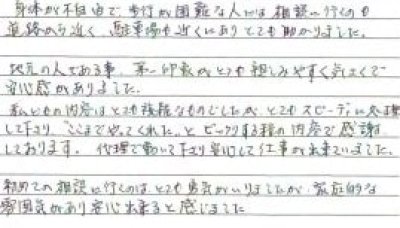 身体が不自由で歩行が困難な人には相談に行くのも
道路から近く、駐車場も近くにありとても助かりました。
地元の人である事、第一印象がとても親しみやすく気さくで
安心感がありました。
私どもの内容はとても複雑なものでしたが、とてもスピーディに処理
して下さり "ここまでやってくれた" とビックリする程の内容で感謝
しております。代理で動いて下さり安心して仕事が出来ていました。
初めての相談に行くのはとても勇気がいりましたが、家庭的な
雰囲気があり安心出来ると感じました